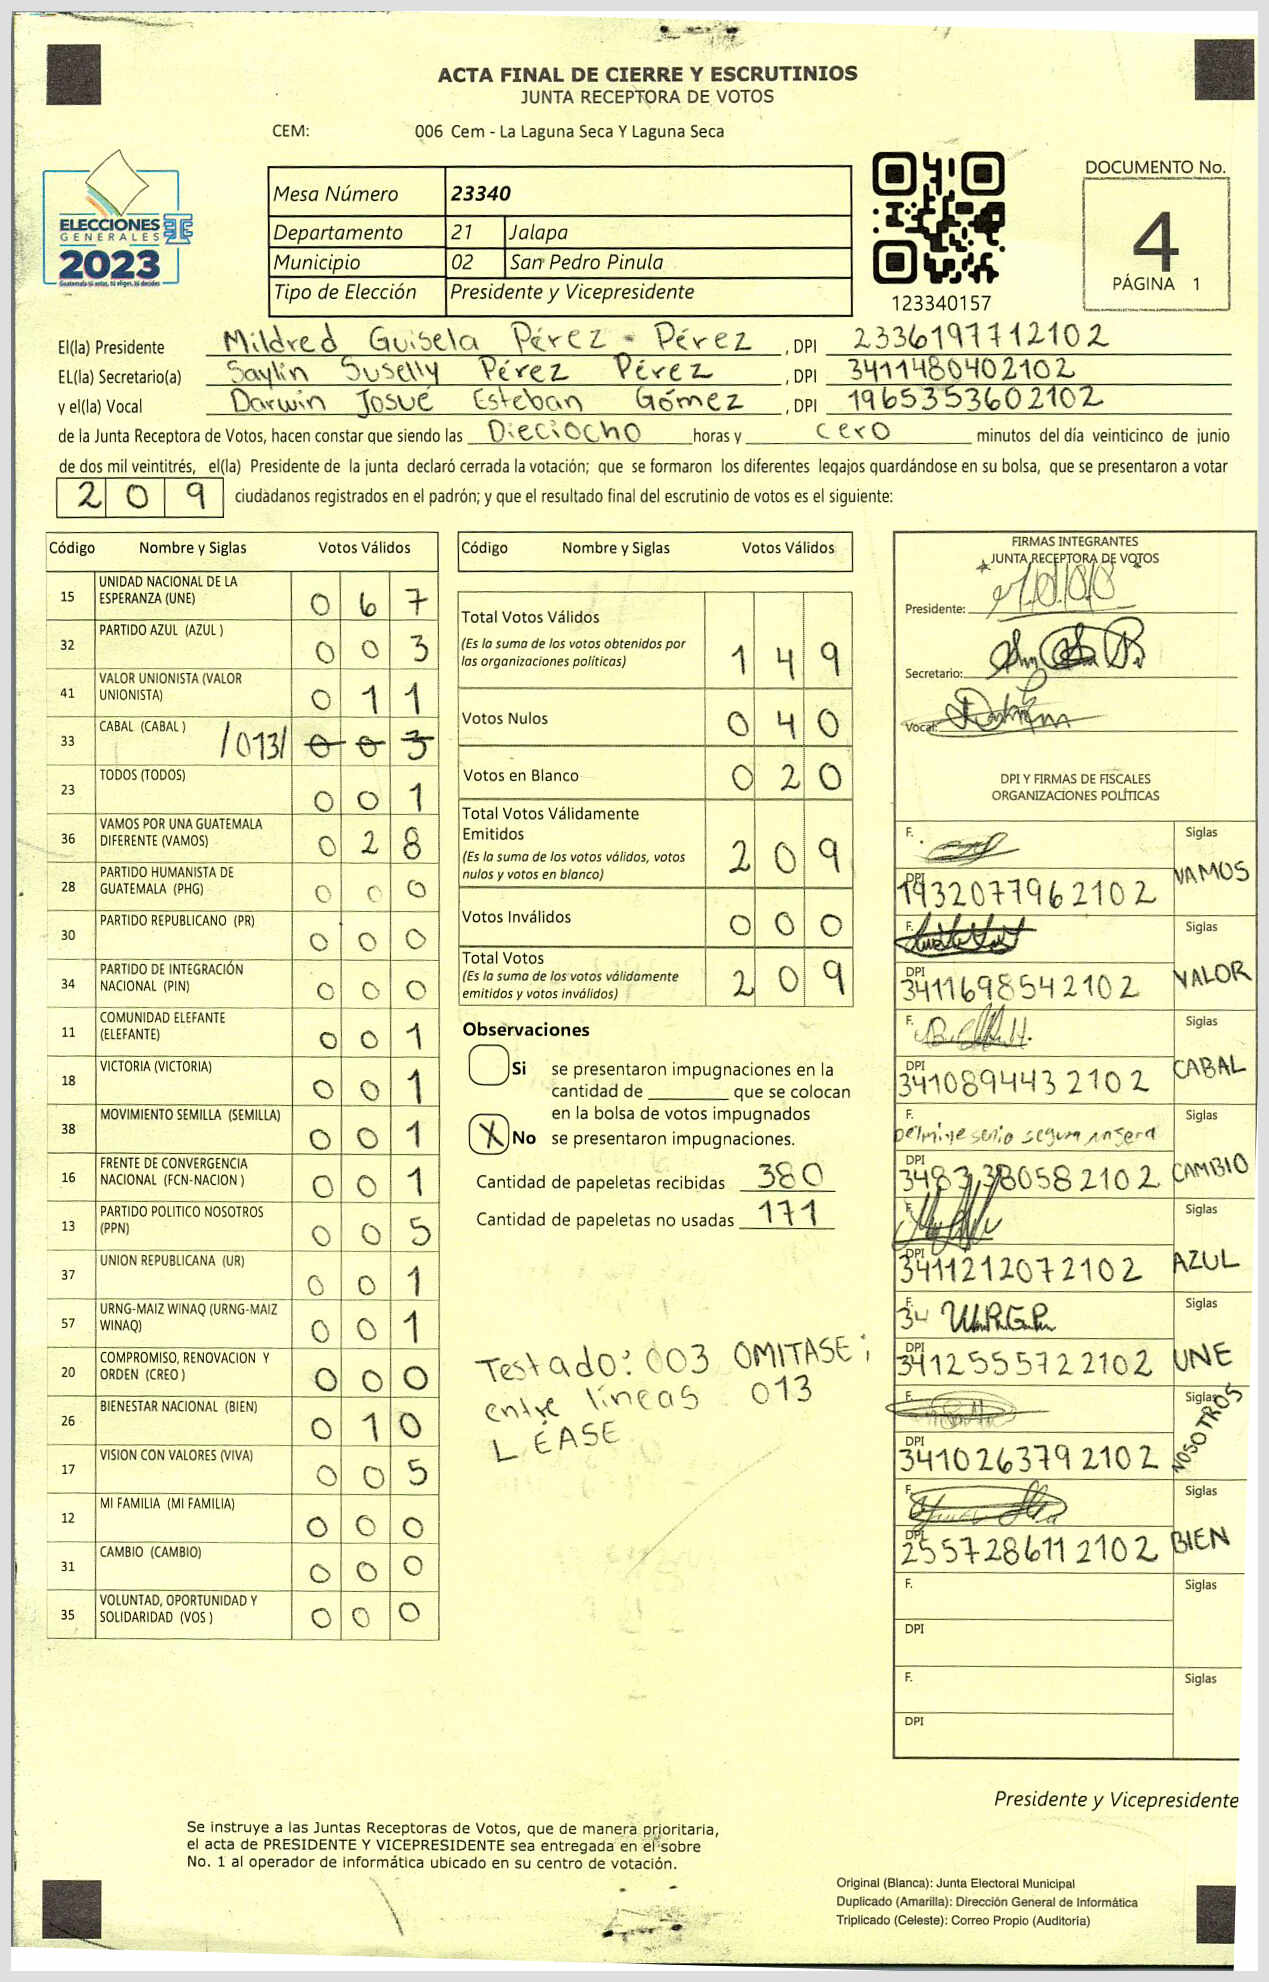 ACTA FINAL DE CIERRE Y ESCRUTINIOS
JUNTA RECEPTORA DE VOTOS
CEM: 006 Cem - La Laguna Seca Y Laguna Seca
ELECCIONES
GENERALES
2023
Guatemala tú votas, tú eliges, tú decides
Mesa Número 23340
Departamento 21 Jalapa
Municipio 02 San Pedro Pinula
Tipo de Elección Presidente y Vicepresidente
123340157
DOCUMENTO No.
4
PÁGINA 1
El(la) Presidente Mildred Guisela Pérez - Pérez , DPI 2336197712102
EL(la) Secretario(a) Saylin Suselly Pérez Pérez , DPI 3411480402102
y el(la) Vocal Darwin Josué Esteban Gómez , DPI 1965353602102
de la Junta Receptora de Votos, hacen constar que siendo las Dieciocho horas y cero minutos del día veinticinco de junio
de dos mil veintitrés, el(la) Presidente de la junta declaró cerrada la votación; que se formaron los diferentes legajos guardándose en su bolsa, que se presentaron a votar
209 ciudadanos registrados en el padrón; y que el resultado final del escrutinio de votos es el siguiente:
Código Nombre y Siglas Votos Válidos
15 UNIDAD NACIONAL DE LA ESPERANZA (UNE) 0 6 7
32 PARTIDO AZUL (AZUL ) 0 0 3
41 VALOR UNIONISTA (VALOR UNIONISTA) 0 1 1
33 CABAL (CABAL ) /013/ 0 0 3
23 TODOS (TODOS) 0 0 1
36 VAMOS POR UNA GUATEMALA DIFERENTE (VAMOS) 0 2 8
28 PARTIDO HUMANISTA DE GUATEMALA (PHG) 0 0 0
30 PARTIDO REPUBLICANO (PR) 0 0 0
34 PARTIDO DE INTEGRACIÓN NACIONAL (PIN) 0 0 0
11 COMUNIDAD ELEFANTE (ELEFANTE) 0 0 1
18 VICTORIA (VICTORIA) 0 0 1
38 MOVIMIENTO SEMILLA (SEMILLA) 0 0 1
16 FRENTE DE CONVERGENCIA NACIONAL (FCN-NACION ) 0 0 1
13 PARTIDO POLITICO NOSOTROS (PPN) 0 0 5
37 UNION REPUBLICANA (UR) 0 0 1
57 URNG-MAIZ WINAQ (URNG-MAIZ WINAQ) 0 0 1
20 COMPROMISO, RENOVACION Y ORDEN (CREO ) 0 0 0
26 BIENESTAR NACIONAL (BIEN) 0 1 0
17 VISION CON VALORES (VIVA) 0 0 5
12 MI FAMILIA (MI FAMILIA) 0 0 0
31 CAMBIO (CAMBIO) 0 0 0
35 VOLUNTAD, OPORTUNIDAD Y SOLIDARIDAD (VOS ) 0 0 0
Código Nombre y Siglas Votos Válidos
Total Votos Válidos 1 4 9
(Es la suma de los votos obtenidos por
las organizaciones políticas)
Votos Nulos 0 4 0
Votos en Blanco 0 2 0
Total Votos Válidamente
Emitidos 2 0 9
(Es la suma de los votos válidos, votos
nulos y votos en blanco)
Votos Inválidos 0 0 0
Total Votos 2 0 9
(Es la suma de los votos válidamente
emitidos y votos inválidos)
Observaciones
Si se presentaron impugnaciones en la
cantidad de ________ que se colocan
en la bolsa de votos impugnados
X No se presentaron impugnaciones.
Cantidad de papeletas recibidas 380
Cantidad de papeletas no usadas 171
Testado: 003 OMITASE;
entre líneas 013
LÉASE
FIRMAS INTEGRANTES
JUNTA RECEPTORA DE VOTOS
Presidente:
Secretario:
Vocal:
DPI Y FIRMAS DE FISCALES
ORGANIZACIONES POLÍTICAS
F. Siglas
DPI 1932077962102 VAMOS
F. Siglas
DPI 3411698542102 VALOR
F. Siglas
DPI 3410894432102 CABAL
F. Siglas
DPI 3483380582102 CAMBIO
F. Siglas
DPI 3411212072102 AZUL
F. Siglas
DPI 3412555722102 UNE
F. Siglas
DPI 3410263792102 NOSOTROS
F. Siglas
DPI 2557286112102 BIEN
F. Siglas
DPI
F. Siglas
DPI
Presidente y Vicepresidente
Se instruye a las Juntas Receptoras de Votos, que de manera prioritaria,
el acta de PRESIDENTE Y VICEPRESIDENTE sea entregada en el sobre
No. 1 al operador de informática ubicado en su centro de votación.
Original (Blanca): Junta Electoral Municipal
Duplicado (Amarilla): Dirección General de Informática
Triplicado (Celeste): Correo Propio (Auditoría)